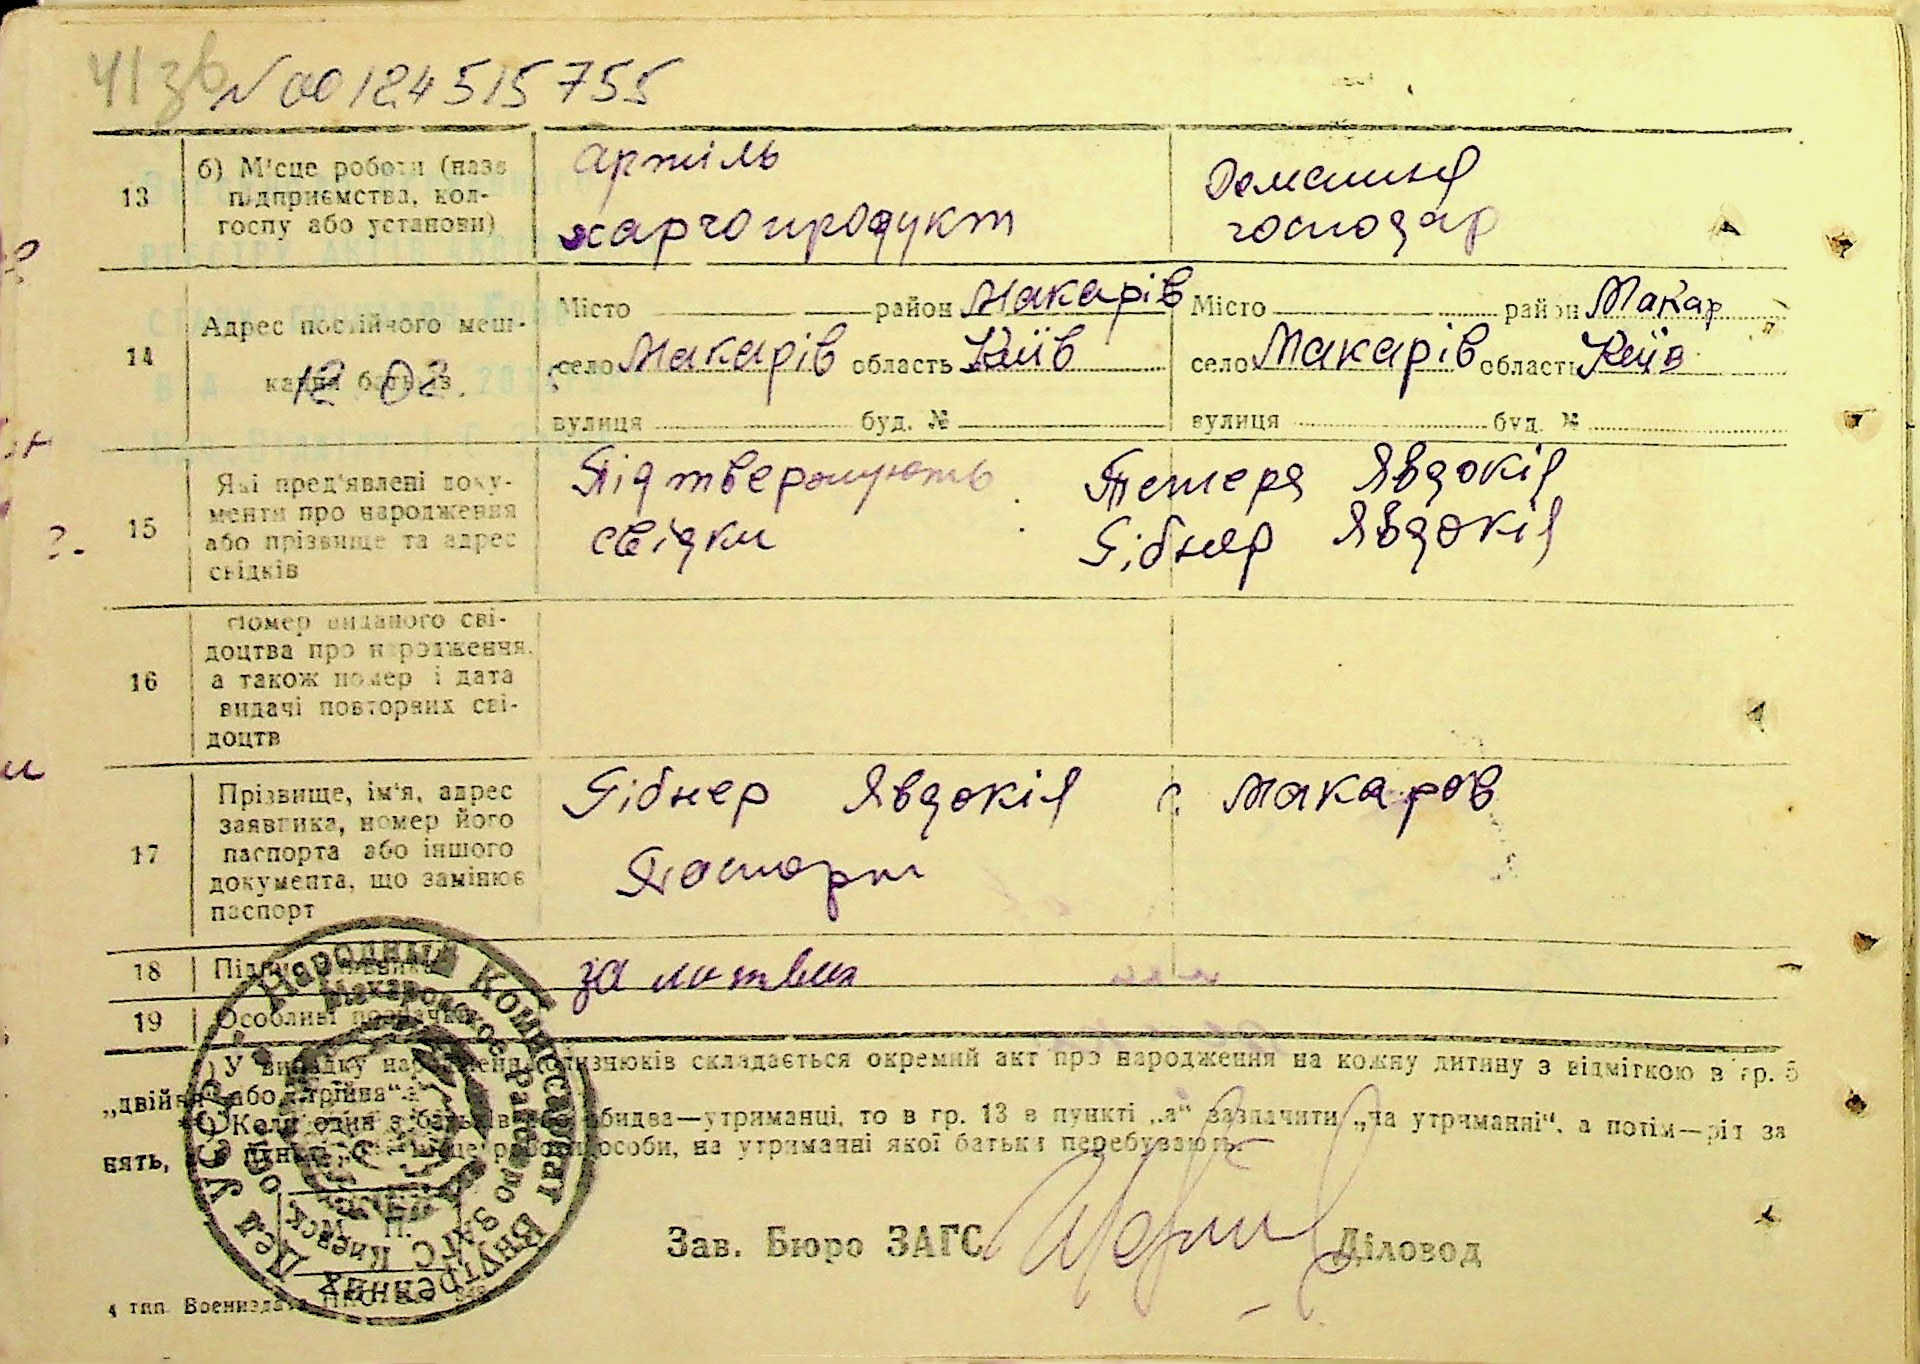 41зв N 00124515755
13 б) Місце роботи (назв підприємства, кол-
госпу або установи)
артіль
харчопродукт
Домашня
господар
14 Адрес постійного меш-
кання батьків
12.02.
Місто район Макарів
село Макарів область Київ
вулиця буд. №
Місто район Макар
село Макарів область Київ
вулиця буд. №
15 Які пред'явлені доку-
менти про народження
або прізвище та адрес
свідків
Підтверджують Петера Явдокія
свідки Гібнер Явдокія
16 Номер виданого сві-
доцтва про народження,
а також номер і дата
видачі повторних сві-
доцтв
17 Прізвище, ім'я, адрес
заявника, номер його
паспорта або іншого
документа, що замінює
паспорт
Гібнер Явдокія с. Макаров
Паспорт
18 Підпис заявника
19 Особливі позначки
У випадку народження близнюків складається окремий акт про народження на кожну дитину з відміткою в гр. 5
„двійня“ або „трійня“
Коли один з батьків або обидва—утриманці, то в гр. 13 в пункті „а“ зазначити „на утриманні“, а потім—рід за
нять, в пункті місце роботи особи, на утриманні якої батьки перебувають.
Зав. Бюро ЗАГС Діловод
4 тип. Воениздата НКО
Народный Комиссариат Внутренних Дел УССР
Макаровское Районное Бюро ЗАГС Киевск. обл.